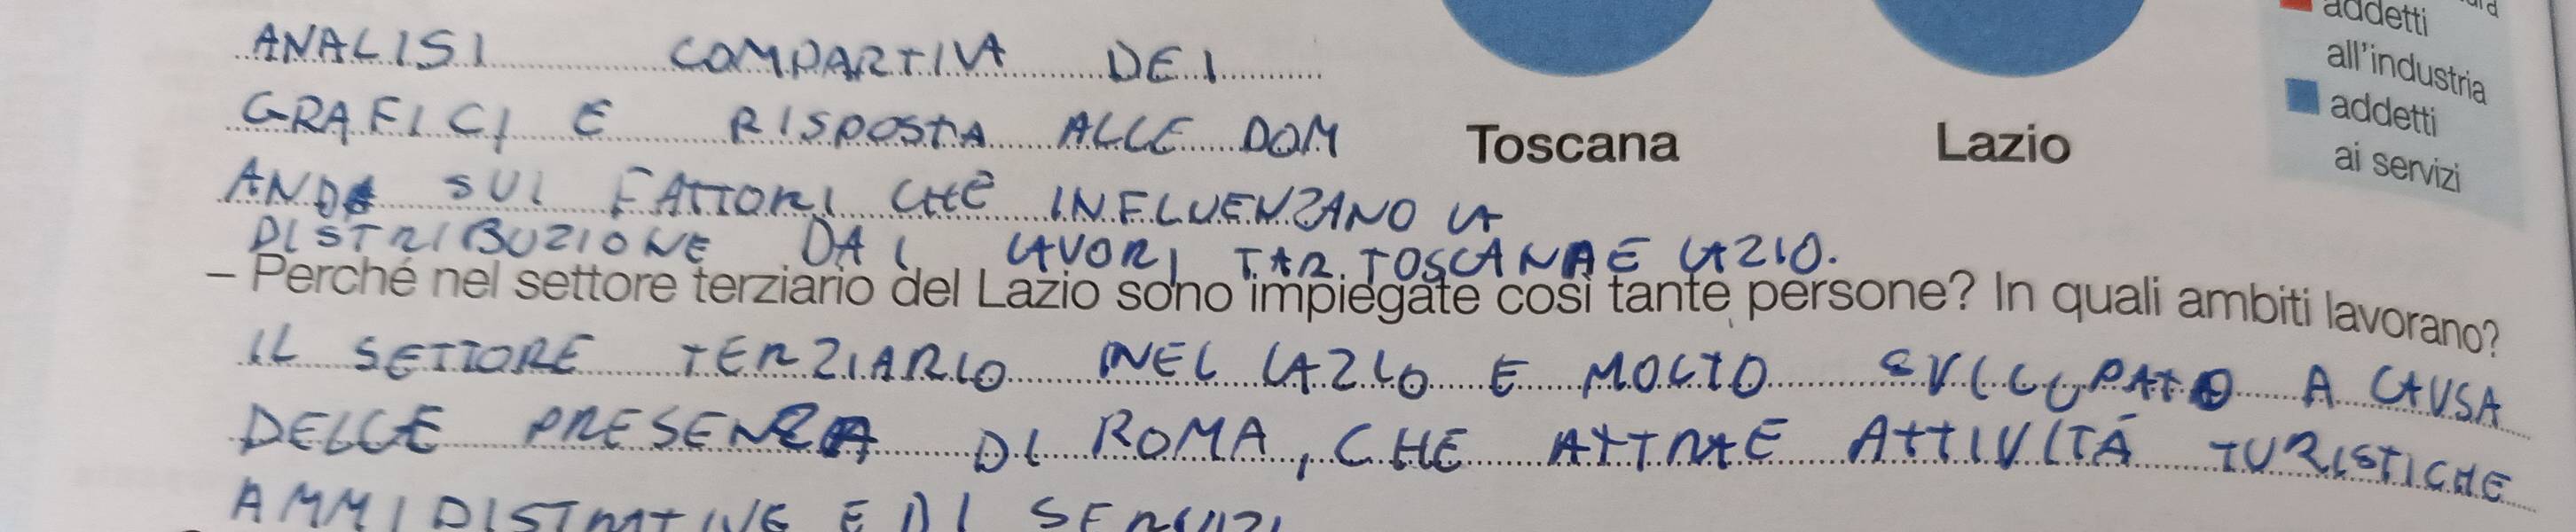 addetti
all'industria
addetti
ai servizi
Toscana
Lazio
ANALISI COMPARTIVA DEI
GRAFICI E RISPOSTA ALLE DOM
ANDE SUI FATTORI CHE INFLUENZANO LA
DISTRIBUZIONE DAI LAVORI TAR. TOSCANA E LAZIO.
– Perché nel settore terziario del Lazio sono impiegate così tante persone? In quali ambiti lavorano?
IL SETTORE TERZIARIO NEL LAZIO E MOLTO SVILUPATO A CAUSA
DELLE PRESENZA DI ROMA, CHE ATTRAE ATTIVITÁ TURISTICHE
AMMIDISTRATIVE E DI SERVIZI